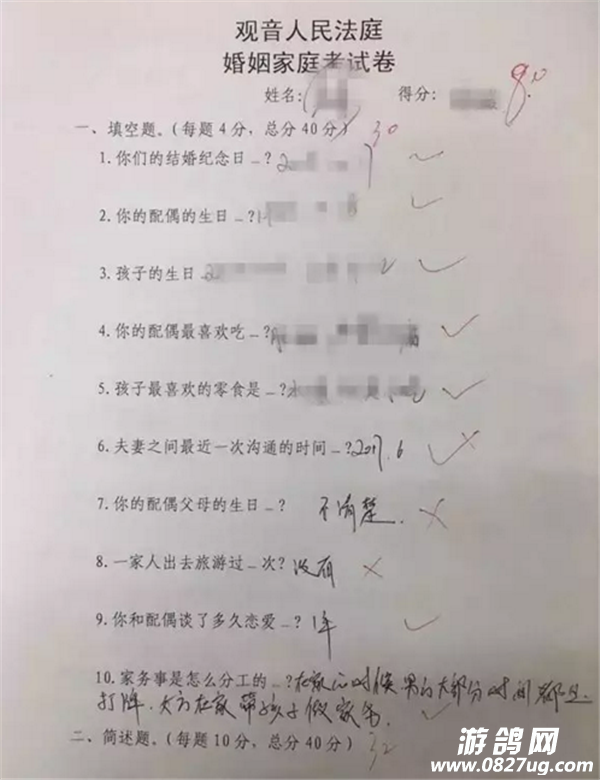 观音人民法庭
婚姻家庭考试卷
姓名: 得分: 80.
一、填空题。（每题4分，总分40分） 30
1.你们的结婚纪念日_? 2
2.你的配偶的生日_?
3.孩子的生日
4.你的配偶最喜欢吃_?
5.孩子最喜欢的零食是_? 水
6.夫妻之间最近一次沟通的时间_? 2017.6
7.你的配偶父母的生日_? 不清楚.
8.一家人出去旅游过_次? 没有
9.你和配偶谈了多久恋爱_? 1年
10.家务事是怎么分工的_? 在家的时候男的大部分时间都是
打牌.女方在家带孩子做家务.
二、简述题。（每题10分，总分40分） 32
游鸽网
www.0827ug.com